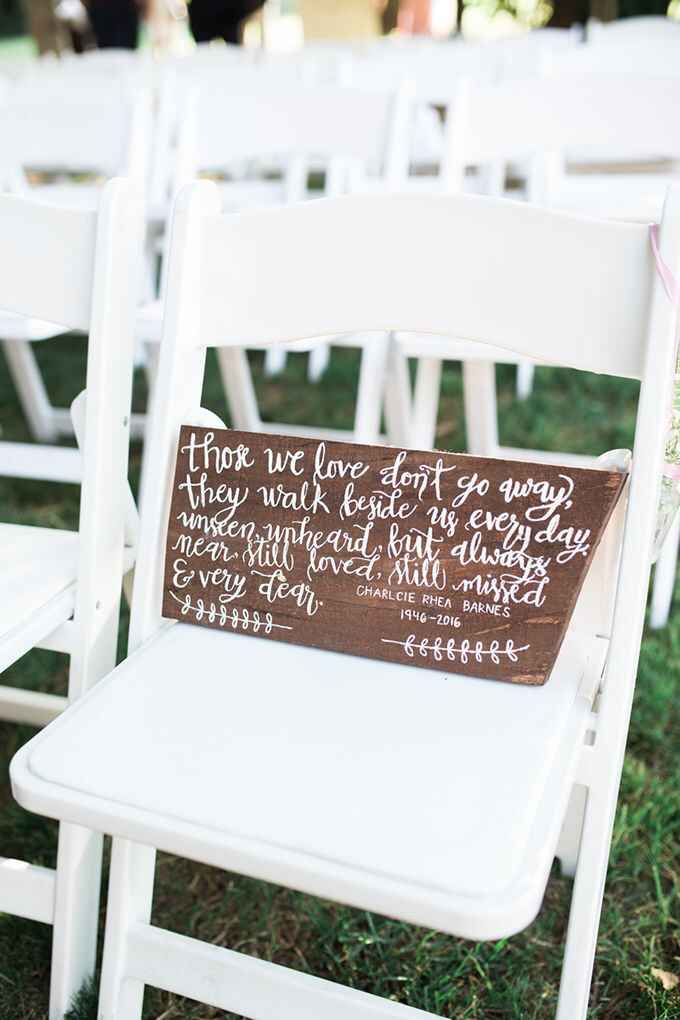 those we love don't go away,
they walk beside us every day.
unseen, unheard, but always
near, still loved, still missed
& very dear.
CHARLCIE RHEA BARNES
1946-2016